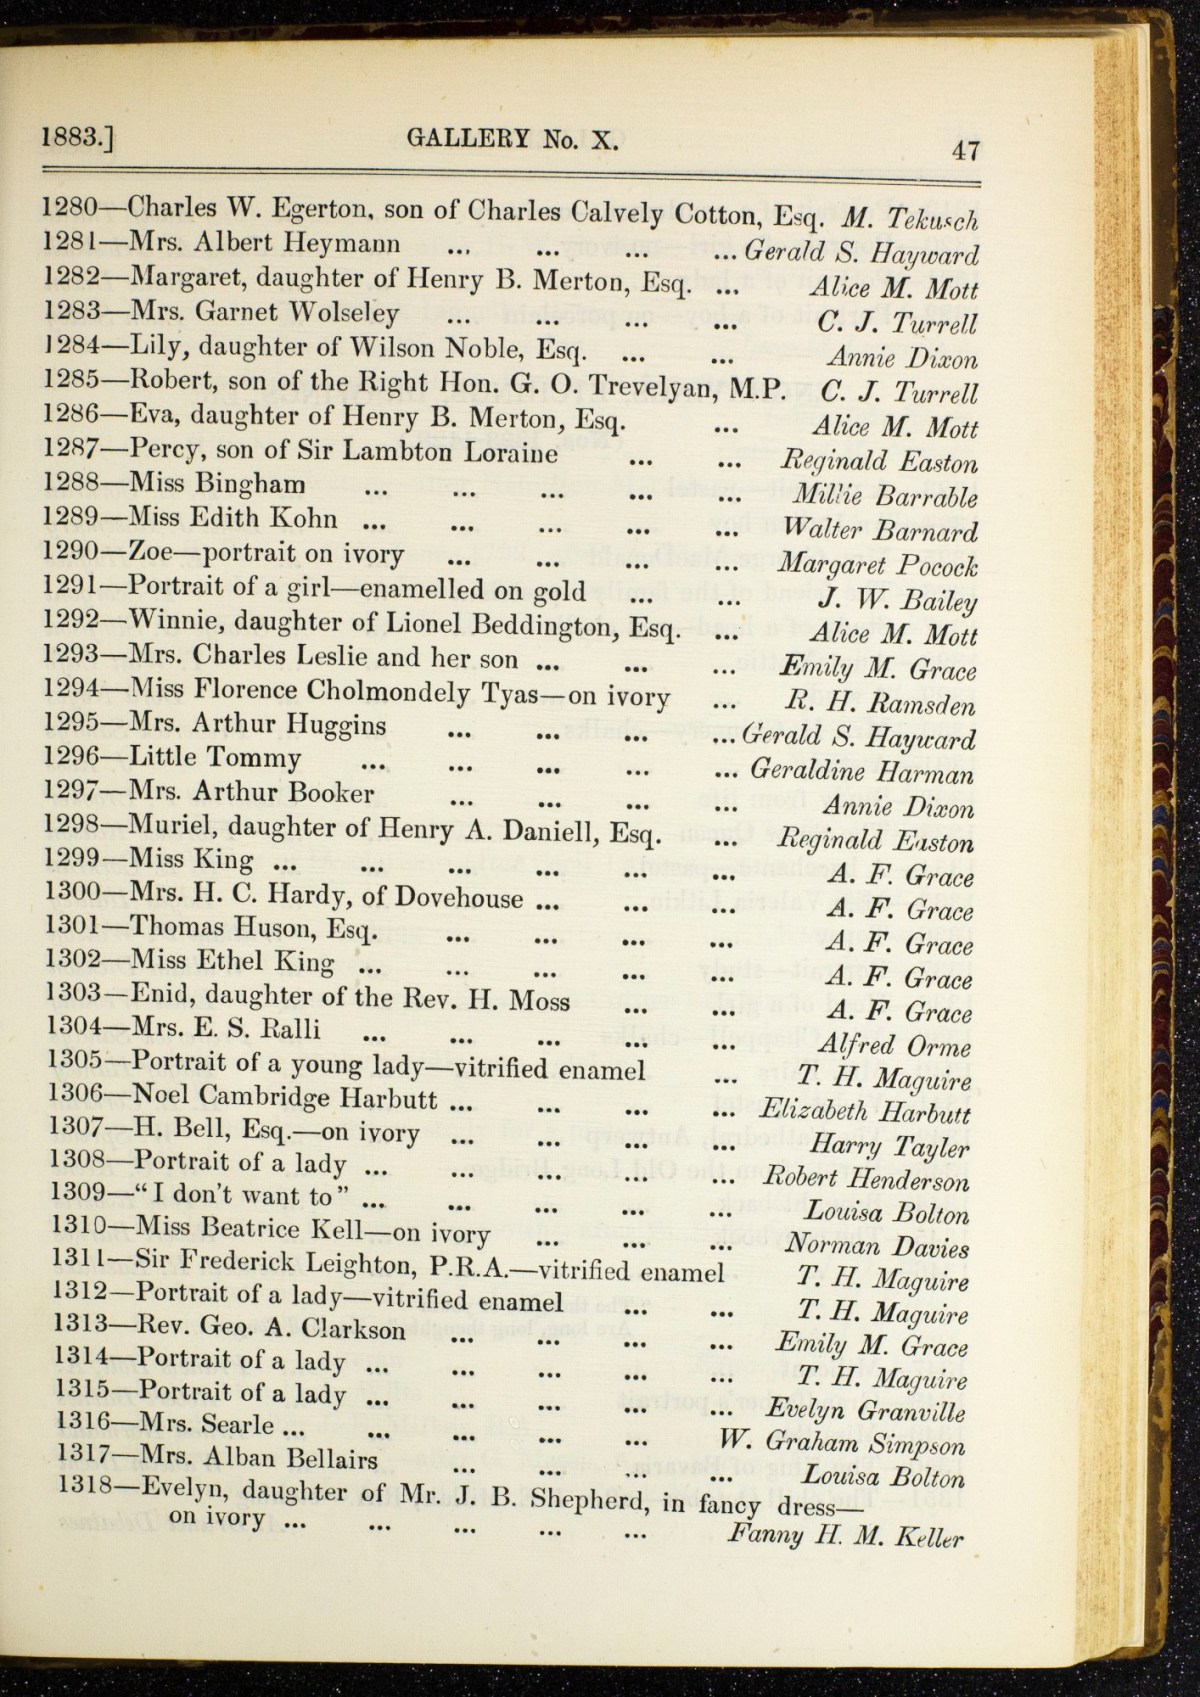 1883.] GALLERY No. X. 47
1280—Charles W. Egerton, son of Charles Calvely Cotton, Esq. M. Tekusch
1281—Mrs. Albert Heymann ... ... ... ... Gerald S. Hayward
1282—Margaret, daughter of Henry B. Merton, Esq. ... Alice M. Mott
1283—Mrs. Garnet Wolseley ... ... ... ... C. J. Turrell
1284—Lily, daughter of Wilson Noble, Esq. ... ... Annie Dixon
1285—Robert, son of the Right Hon. G. O. Trevelyan, M.P. C. J. Turrell
1286—Eva, daughter of Henry B. Merton, Esq. ... Alice M. Mott
1287—Percy, son of Sir Lambton Loraine ... ... Reginald Easton
1288—Miss Bingham ... ... ... ... ... Millie Barrable
1289—Miss Edith Kohn ... ... ... ... ... Walter Barnard
1290—Zoe—portrait on ivory ... ... ... ... Margaret Pocock
1291—Portrait of a girl—enamelled on gold ... ... J. W. Bailey
1292—Winnie, daughter of Lionel Beddington, Esq. ... Alice M. Mott
1293—Mrs. Charles Leslie and her son ... ... ... Emily M. Grace
1294—Miss Florence Cholmondely Tyas—on ivory ... R. H. Ramsden
1295—Mrs. Arthur Huggins ... ... ... ... Gerald S. Hayward
1296—Little Tommy ... ... ... ... ... Geraldine Harman
1297—Mrs. Arthur Booker ... ... ... ... Annie Dixon
1298—Muriel, daughter of Henry A. Daniell, Esq. ... Reginald Easton
1299—Miss King ... ... ... ... ... ... A. F. Grace
1300—Mrs. H. C. Hardy, of Dovehouse ... ... ... A. F. Grace
1301—Thomas Huson, Esq. ... ... ... ... A. F. Grace
1302—Miss Ethel King ... ... ... ... ... A. F. Grace
1303—Enid, daughter of the Rev. H. Moss ... ... A. F. Grace
1304—Mrs. E. S. Ralli ... ... ... ... ... Alfred Orme
1305—Portrait of a young lady—vitrified enamel ... T. H. Maguire
1306—Noel Cambridge Harbutt ... ... ... ... Elizabeth Harbutt
1307—H. Bell, Esq.—on ivory ... ... ... ... Harry Tayler
1308—Portrait of a lady ... ... ... ... ... Robert Henderson
1309—“I don't want to” ... ... ... ... ... Louisa Bolton
1310—Miss Beatrice Kell—on ivory ... ... ... Norman Davies
1311—Sir Frederick Leighton, P.R.A.—vitrified enamel T. H. Maguire
1312—Portrait of a lady—vitrified enamel ... ... T. H. Maguire
1313—Rev. Geo. A. Clarkson ... ... ... ... Emily M. Grace
1314—Portrait of a lady ... ... ... ... ... T. H. Maguire
1315—Portrait of a lady ... ... ... ... ... Evelyn Granville
1316—Mrs. Searle ... ... ... ... ... W. Graham Simpson
1317—Mrs. Alban Bellairs ... ... ... ... Louisa Bolton
1318—Evelyn, daughter of Mr. J. B. Shepherd, in fancy dress—
on ivory ... ... ... ... ... Fanny H. M. Keller